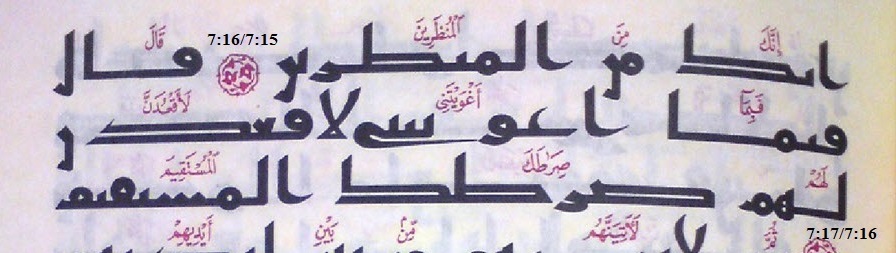 إِنَّكَ مِنَ ٱلْمُنظَرِينَ 7:16/7:15 قَالَ
انك من المنظرين قال
فَبِمَآ أَغْوَيْتَنِي لَأَقْعُدَنَّ
فبما اغويتنى لاقعدن
لَهُمْ صِرَٰطَكَ ٱلْمُسْتَقِيمَ
لهم صرطك المستقيم
7:17/7:16 ثُمَّ لَأٓتِيَنَّهُم مِّنۢ بَيْنِ أَيْدِيهِمْ